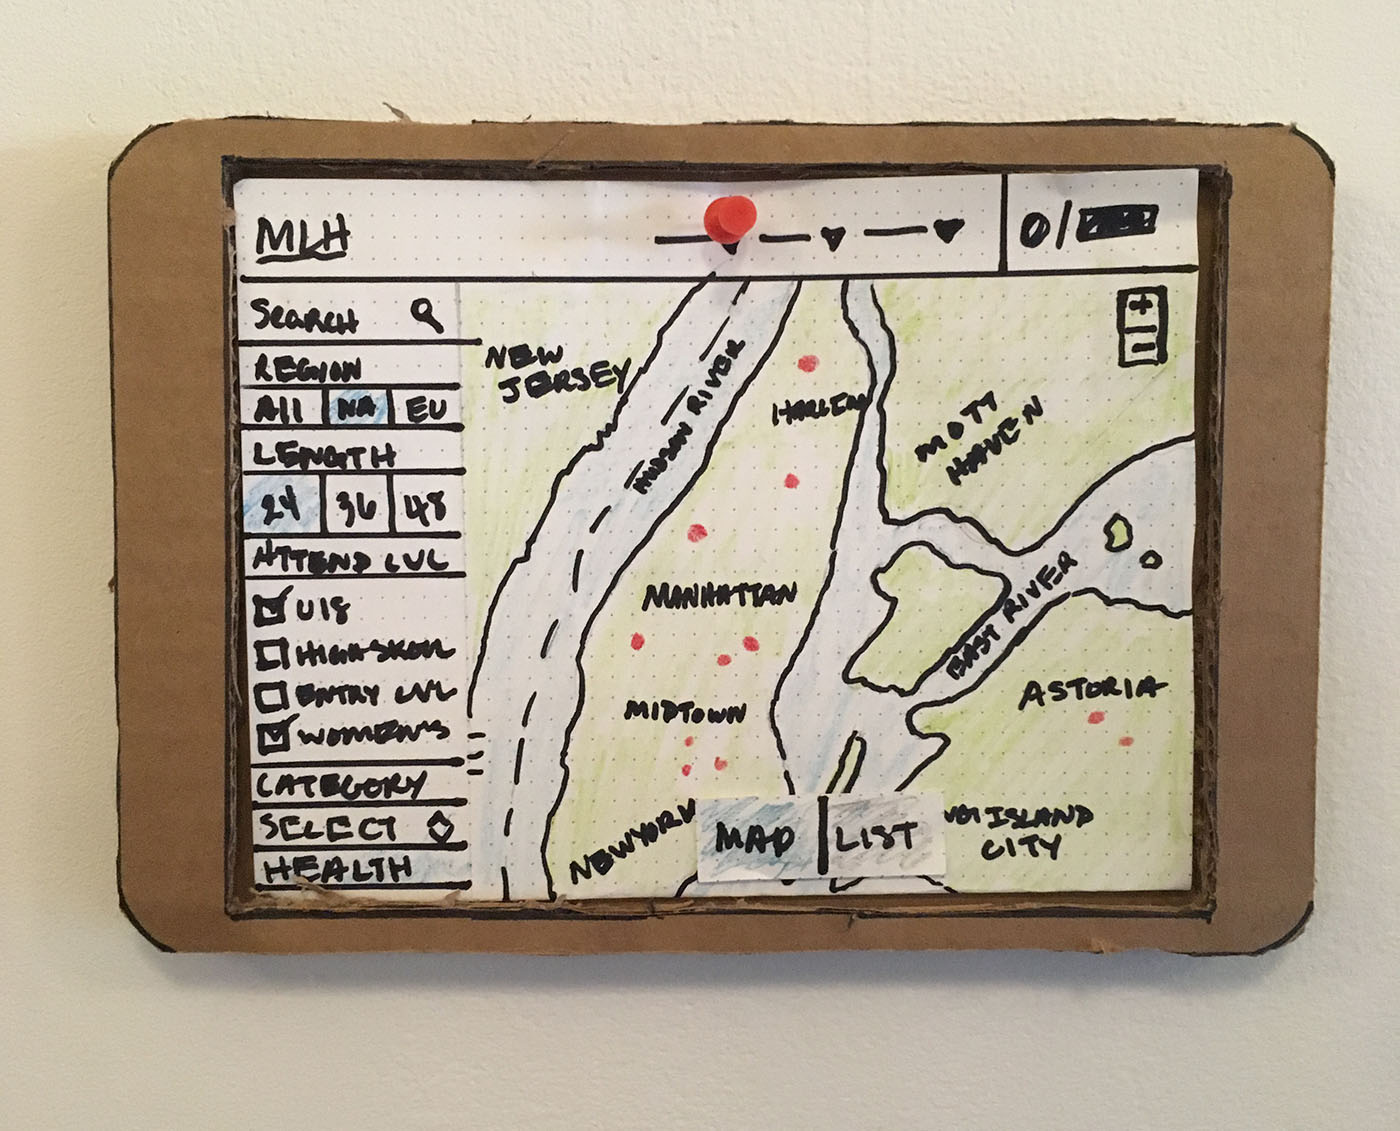 MLH
0/
SEARCH
REGION
All NA EU
LENGTH
24 36 48
ATTEND LVL
U18
HIGH SKOOL
ENTRY LVL
WOMEN'S
CATEGORY
SELECT
HEALTH
NEW
JERSEY
HUDSON RIVER
HARLEM
MOTT
HAVEN
MANHATTAN
EAST RIVER
MIDTOWN
ASTORIA
NEW YORK
ISLAND
CITY
MAP LIST
+
-